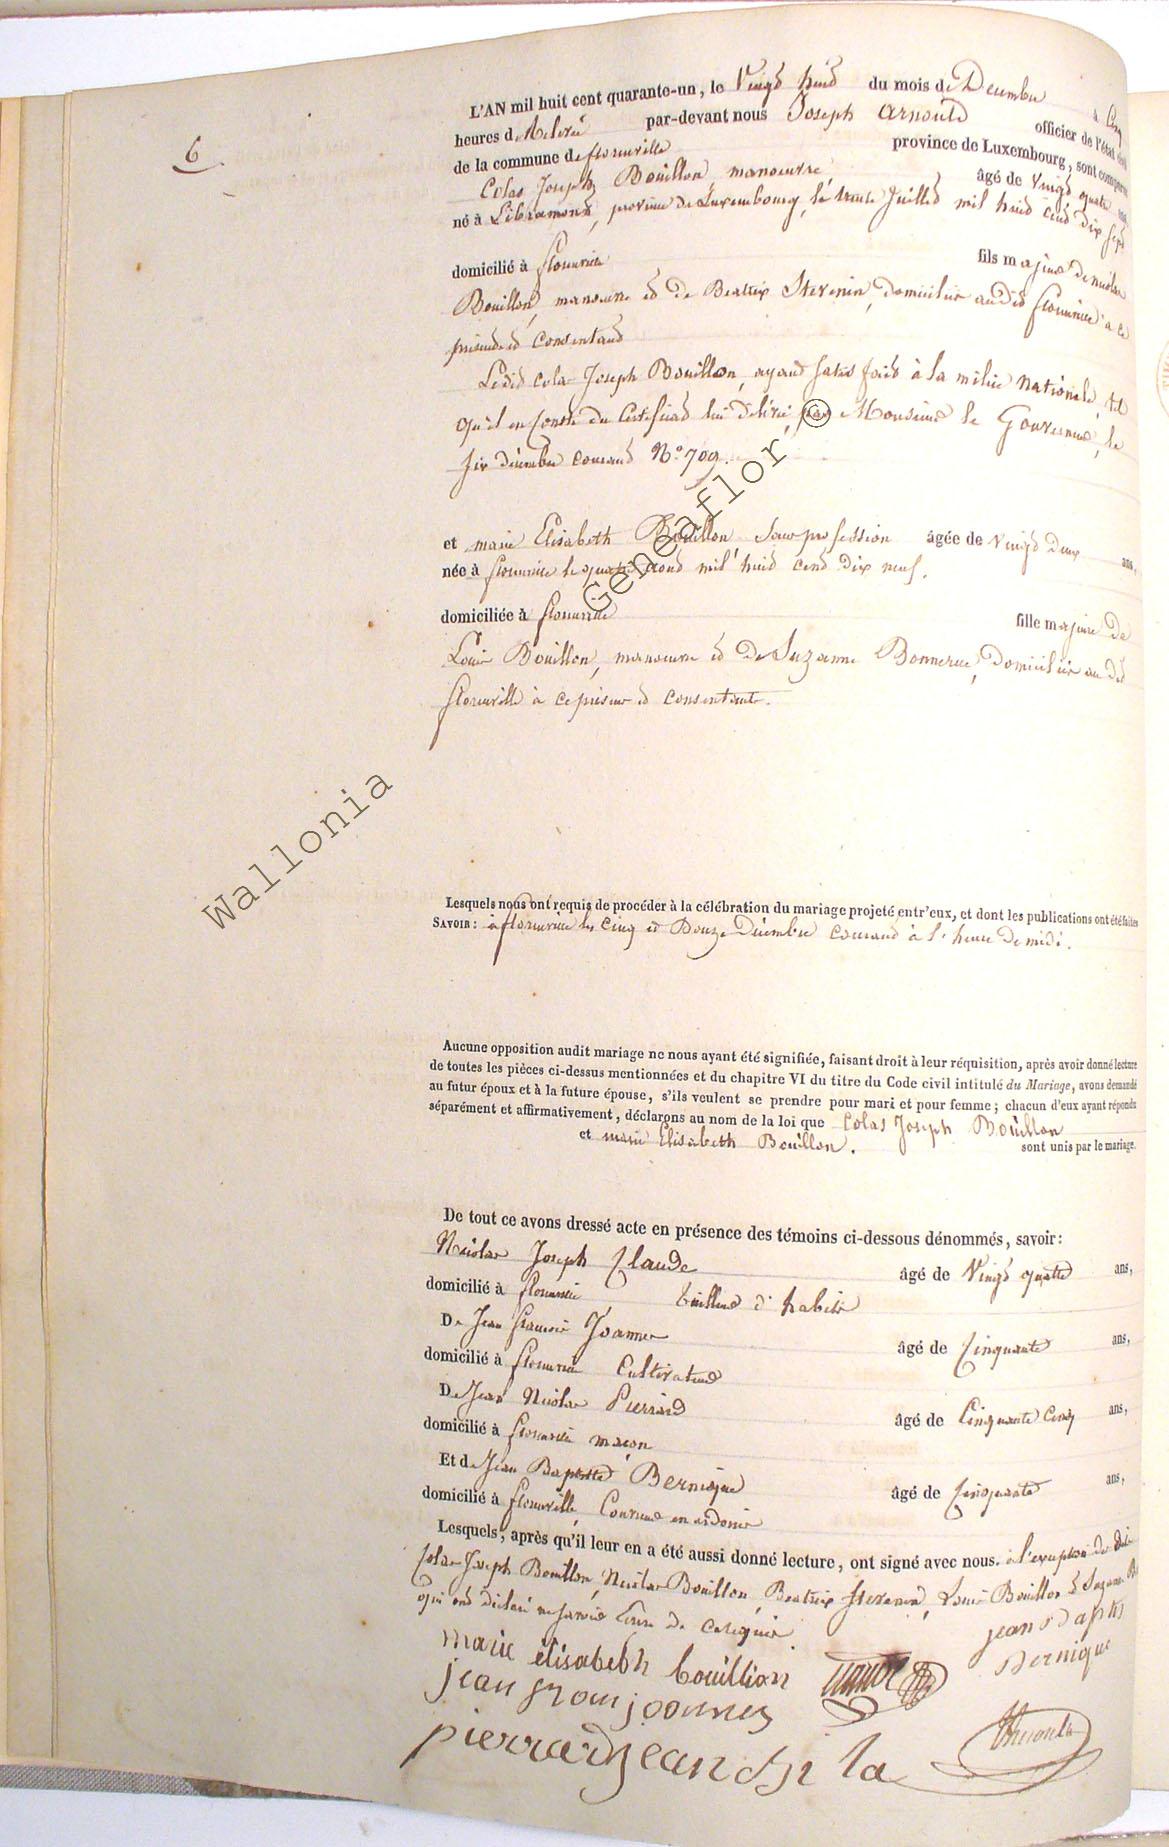 6
L'AN mil huit cent quarante-un, le Vingt huit du mois de Decembre à Cinq
heures de Relevée par-devant nous Joseph Arnould officier de l'état civil
de la commune de florenville province de Luxembourg, sont comparus
Colas Joseph Bouillon manoeuvre, âgé de vingt quatre ans
né à Libramont, province de Luxembourg, le trente Juillet mil huit cent dix sept
domicilié à florenville fils majeur de nicolas
Bouillon, manoeuvre et de Beatrix Stevenin, domiciliés audit florenville à ce
présents et consentants
Ledit Colas Joseph Bouillon, ayant satisfait à la milice Nationale, tel
qu'il en conste du certificat lui délivré par Monsieur le Gouverneur, le
six décembre courant N° 709.
et marie Elisabeth Bouillon Sans profession âgée de vingt deux ans,
née à florenville le quatre aout mil huit cent dix neuf.
domiciliée à florenville fille majeure de
Louis Bouillon, manoeuvre et de Suzanne Bonnerue, domiciliés au dit
florenville à ce présents et consentants.
Lesquels nous ont requis de procéder à la célébration du mariage projeté entr'eux, et dont les publications ont été faites
SAVOIR: à florenville les cinq et Douze Décembre courant à l'heure de midi.
Aucune opposition audit mariage ne nous ayant été signifiée, faisant droit à leur réquisition, après avoir donné lecture
de toutes les pièces ci-dessus mentionnées et du chapitre VI du titre du Code civil intitulé du Mariage, avons demandé
au futur époux et à la future épouse, s'ils veulent se prendre pour mari et pour femme; chacun d'eux ayant répondu
séparément et affirmativement, déclarons au nom de la loi que Colas Joseph Bouillon
et marie Elisabeth Bouillon. sont unis par le mariage.
De tout ce avons dressé acte en présence des témoins ci-dessous dénommés, savoir:
Nicolas Joseph Claude âgé de Vingt quatre ans,
domicilié à florenville tailleur d'habits
De Jean francois Joannes âgé de Cinquante ans,
domicilié à florenville Cultivateur
De Jean Nicolas Pierrard âgé de Cinquante Cinq ans,
domicilié à florenville maçon
Et de Jean Baptiste Bernique âgé de Cinquante ans,
domicilié à florenville, Couvreur en ardoises
Lesquels, après qu'il leur en a été aussi donné lecture, ont signé avec nous. à l'exception de
Colas Joseph Bouillon, Nicolas Bouillon, Beatrix Stevenin, Louis Bouillon et Suzanne
qui ont déclaré ne savoir Ecrire de ce requis.
marie élisabeth bouillion
jean Baptis
Bernique
jean joannes
pierrard jean
Wallonia Geneaflor ©